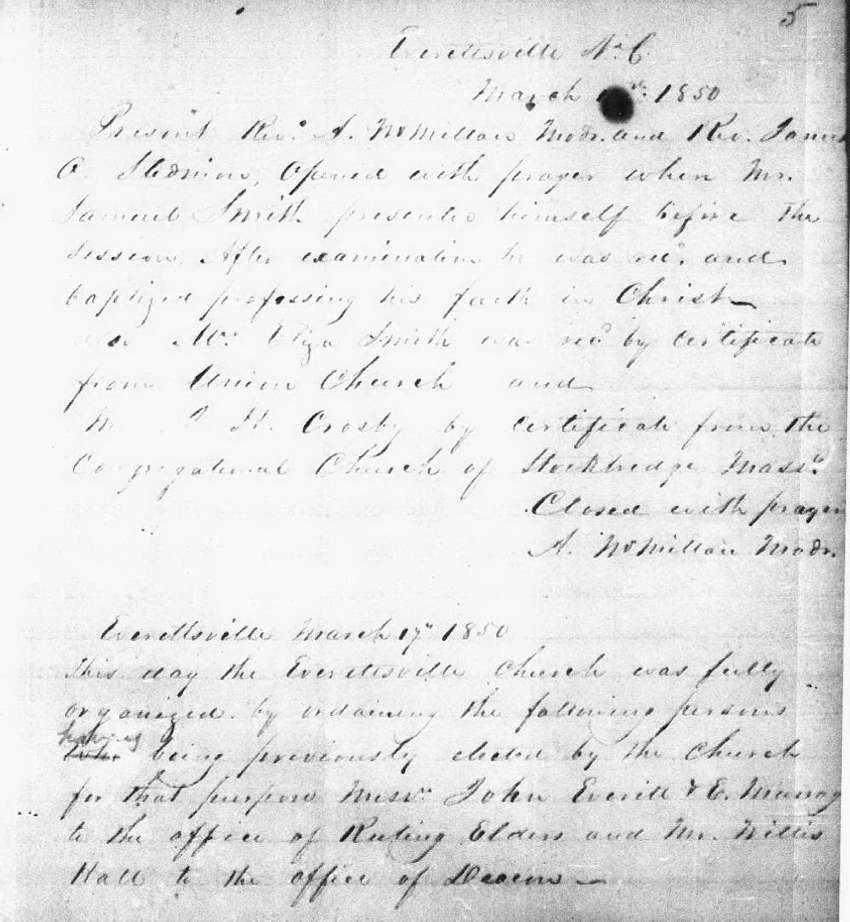 5
Everettsville N. C.
March 1850
Present Rev.d A. McMillan Modr. and Rev. James
O. Stedman, Opened with prayer when Mr.
Samuel Smith presented himself before the
session. After examination he was rec.d and
baptized professing his faith in Christ—
also Mrs. Eliza Smith was rec.d by certificate
from Union Church and
H. Crosby by certificate from the
Congregational Church of Stockbridge Mass.
Closed with prayer
A. McMillan Modr.
Everettsville March 17th 1850
This day the Everettsville Church was fully
organized by ordaining the following persons
having
being previously elected by the Church
for that purpose Messrs. John Everitt & E. Murray
to the office of Ruling Elders and Mr. Willis
Hall to the office of Deacon—